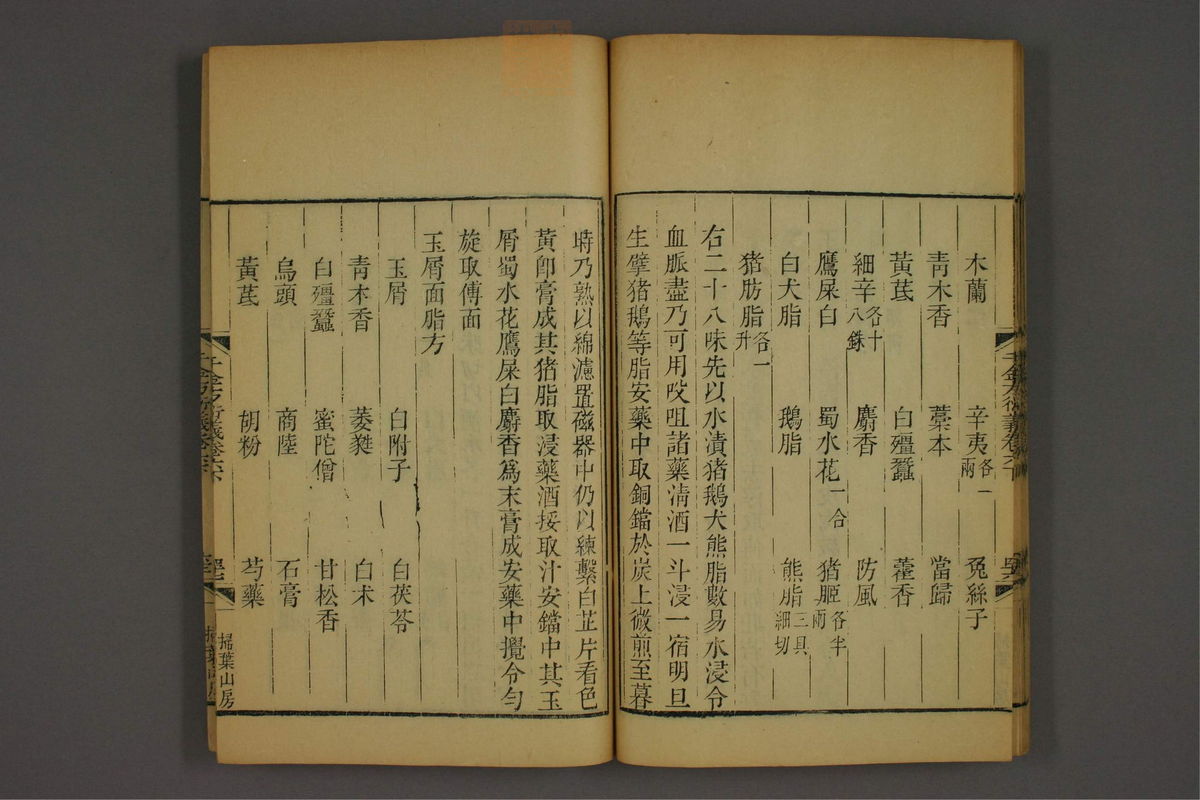 木蘭　辛夷各一兩　兔絲子
青木香　藁本　當歸
黃芪　白殭蠶　藿香
細辛各十八銖　麝香　防風
鷹屎白　蜀水花一合　猪胰各半兩
白犬脂　鵝脂　熊脂三具細切
猪肪脂各一升
右二十八味先以水漬猪鵝犬熊脂數易水浸令
血脈盡乃可用㕮咀諸藥淸酒一斗浸一宿明旦
生擘猪鵝等脂安藥中取銅鐺於炭上微煎至暮
時乃熟以綿濾置磁器中仍以練繫白芷片看色
黃卽膏成其猪脂取浸藥酒挼取汁安鐺中其玉
屑蜀水花鷹屎白麝香爲末膏成安藥中攪令勻
旋取傅面
玉屑面脂方
玉屑　白附子　白茯苓
青木香　萎蕤　白术
白殭蠶　蜜陀僧　甘松香
烏頭　商陸　石膏
黃芪　胡粉　芍藥
掃葉山房